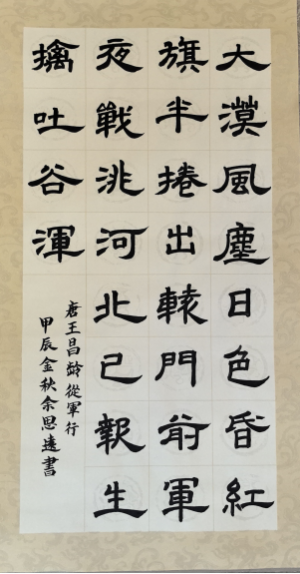 大漠風塵日色昏紅
旗半捲出轅門前軍
夜戰洮河北已報生
擒吐谷渾
唐王昌齡從軍行
甲辰金秋余思遠書